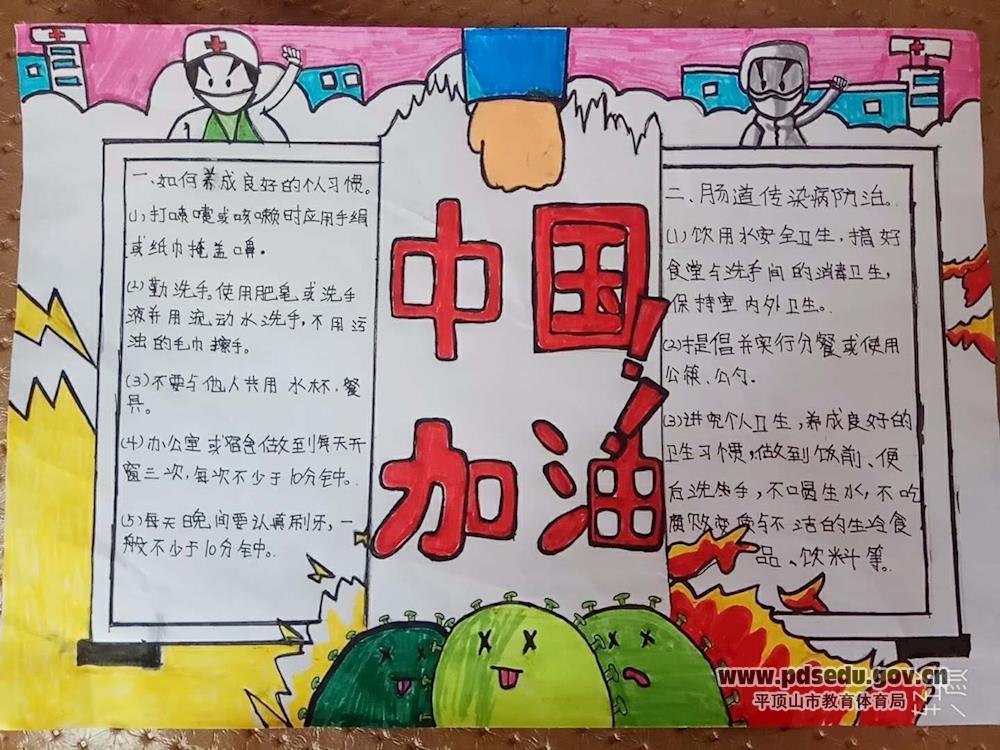 一、如何养成良好的个人习惯。
(1)打喷嚏或咳嗽时应用手绢
或纸巾掩盖口鼻。
(2)勤洗手。使用肥皂或洗手
液并用流动水洗手,不用污
浊的毛巾擦手。
(3)不要与他人共用水杯、餐
具。
(4)办公室或宿舍做到每天开
窗三次,每次不少于10分钟。
(5)每天晚间要认真刷牙,一
般不少于10分钟。
中国
加油!!
二、肠道传染病防治。
(1)饮用水安全卫生,搞好
食堂与洗手间的消毒卫生,
保持室内外卫生。
(2)提倡并实行分餐或使用
公筷、公勺。
(3)讲究个人卫生,养成良好的
卫生习惯,做到饭前、便
后洗手,不喝生水,不吃
腐败变质与不洁的生冷食
品、饮料等。
www.pdsedu.gov.cn
平顶山市教育体育局